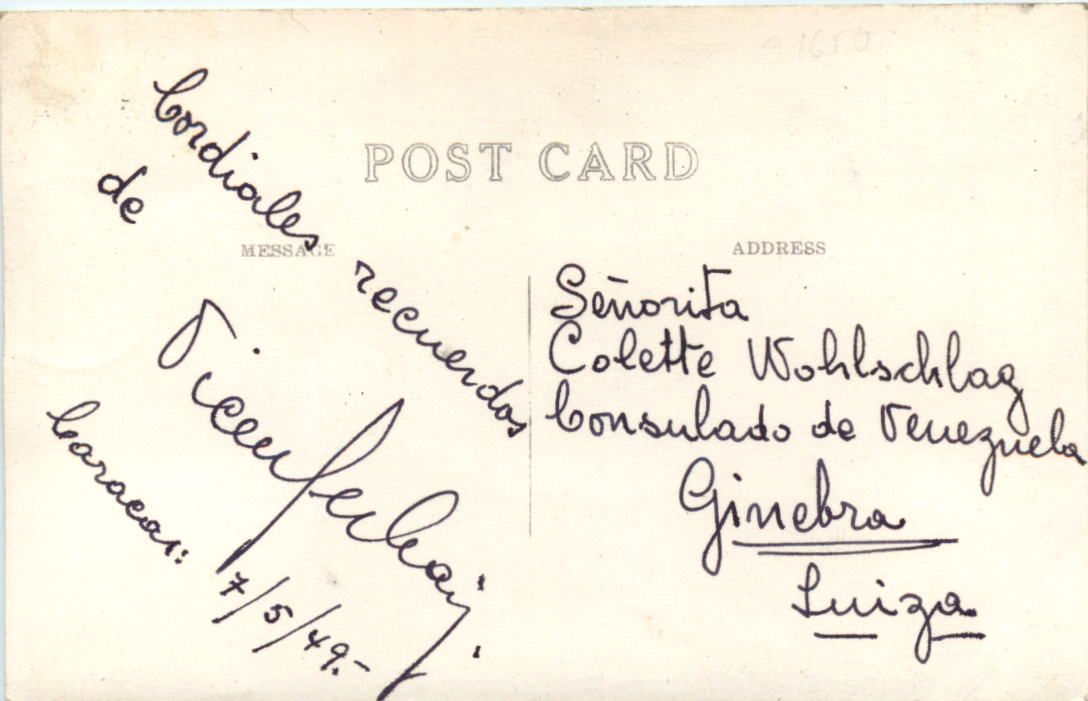 POST CARD
MESSAGE
Cordiales recuerdos
de
Caracas: 7/5/49.-
ADDRESS
Señorita
Colette Wohlschlag
Consulado de Venezuela
Ginebra
Suiza